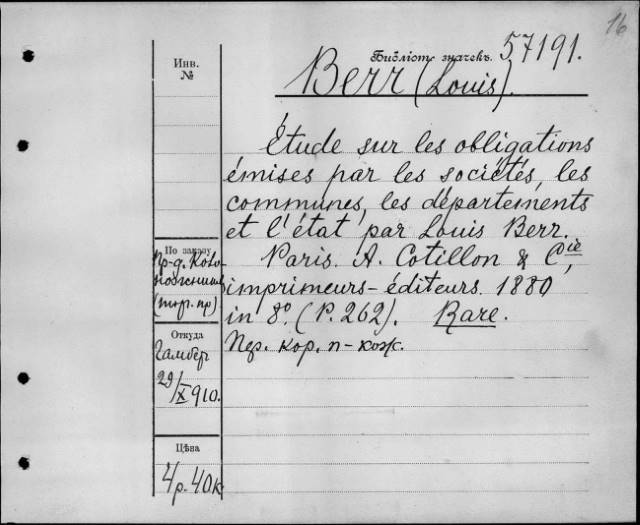 16
Библіот. значекъ. 57191.
Berr (Louis).
Инв.
№
Étude sur les obligations
émises par les sociétés, les
communes, les départements
et l'état par Louis Berr.
Paris. A. Cotillon & Cie,
imprimeurs-éditeurs. 1880
in 8º. (P. 262). Rare.
По заказу
пр-д.
(торг. пр)
Откуда
29/X 910.
Цѣва
4р. 40к
кор. п-кож.